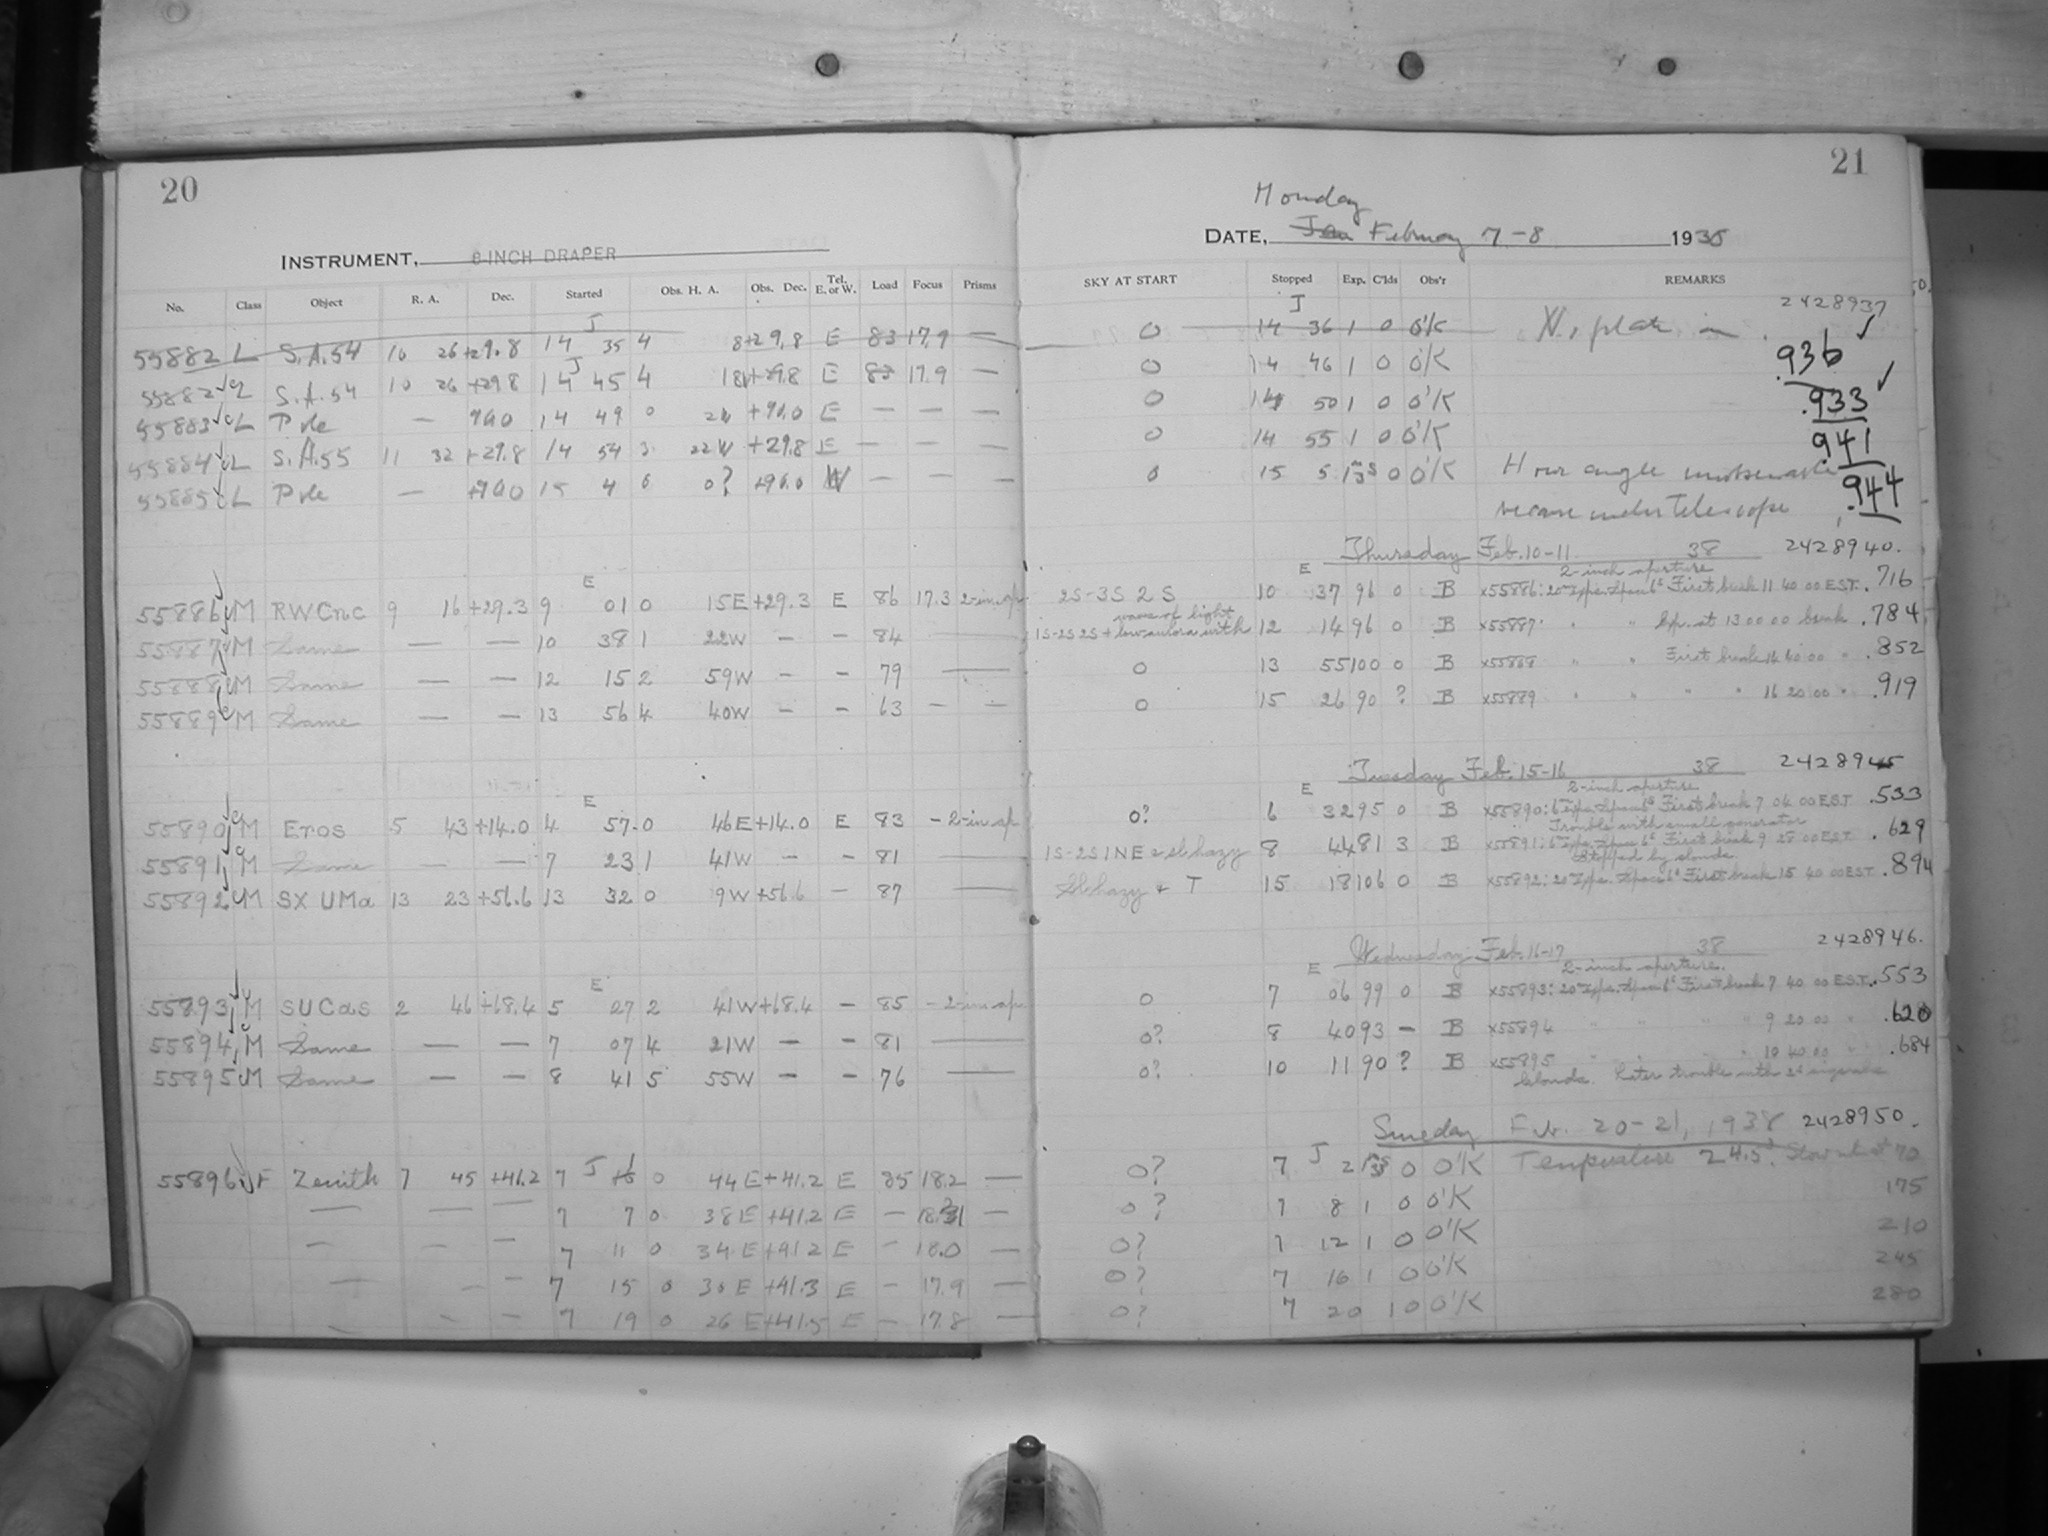 20
INSTRUMENT, 8-INCH DRAPER
No. Class Object R. A. Dec. Started Obs. H. A. Obs. Dec. Tel. E. or W. Load Focus Prisms
55882 L S.A.54 10 26 +29.8 14 J 35 4 8 +29.8 E 83 17.9 —
55882 L S.A.54 10 26 +29.8 14 J 45 4 18W +29.8 E 83 17.9 —
55883 L Pole — 90.0 14 49 0 2W +90.0 E — — —
55884 L S.A.55 11 32 +29.8 14 54 3 22W +29.8 E — — —
55885 L Pole — +90.0 15 4 0 0? +90.0 W — — —
55886 M RWCnc 9 16 +29.3 9 E 01 0 15E +29.3 E 86 17.3 2-in.ap.
55887 M Same — — 10 38 1 22W — — 84 —
55888 M Same — — 12 15 2 59W — — 79 —
55889 M Same — — 13 56 4 40W — — 63 — —
55890 M Eros 5 43 +14.0 4 E 57 0 46E +14.0 E 83 — 2-in.ap.
55891 M Same — — 7 23 1 41W — — 81 —
55892 M SX UMa 13 23 +56.6 13 32 0 9W +56.6 — 87 —
55893 M SUCas 2 46 +68.4 5 E 27 2 41W +68.4 — 85 — 2-in.ap.
55894 M Same — — 7 07 4 21W — — 81 —
55895 M Same — — 8 41 5 55W — — 76 —
55896 F Zenith 7 45 +41.2 7 J 0 44E +41.2 E 85 18.2 —
— — — 7 7 0 38E +41.2 E — —
— — — 7 11 0 34E +41.2 E — 18.0 —
— — — 7 15 0 30E +41.3 E — 17.9 —
— — — 7 19 0 26E +41.5 E — 17.8 —
21
Monday
DATE, Jan February 7-8 1938
SKY AT START Stopped Exp. C'lds Obs'r REMARKS
2428937
0 14 J 36 1 0 O'K No plate in
0 14 46 1 0 O'K .936
0 14 50 1 0 O'K .933
0 14 55 1 0 O'K .941
0 15 5 0 O'K Hour angle unobservable .944
because under Telescope
Thursday Feb. 10-11 38 2428940.
2-inch aperture
2S-3S 2S 10 E 37 96 0 B x55886: First break 11 40 00 EST .716
wave of light
1S-2S 2S + low aurora with 12 14 96 0 B x55887 " " Exp. at 13 00 00 break .784
0 13 55 100 0 B x55888 " " First break 14 40 00 " .852
0 15 26 90 ? B x55889 " " " " 16 20 00 " .919
Tuesday Feb. 15-16 38 2428945
2-inch aperture
0? 6 E 32 95 0 B x55890: First break 7 04 00 EST .533
Trouble with small generator
1S-2S 1NE & sl hazy 8 44 81 3 B x55891: First break 9 28 00 EST .629
Stopped by clouds.
Sl hazy + T 15 18 106 0 B x55892: First break 15 40 00 EST .894
Wednesday Feb. 16-17 38 2428946.
2-inch aperture.
0 7 E 06 99 0 B x55893: First break 7 40 00 EST .553
0? 8 40 93 — B x55894 " " " " 9 20 00 " .620
0? 10 11 90 ? B x55895 " " 10 40 00 " .684
Clouds. Later trouble with
Sunday Feb. 20-21, 1938 2428950.
0? 7 J 2 0 O'K Temperature 24.5. 70
0? 7 8 1 0 O'K 175
0? 7 12 1 0 O'K 210
0? 7 16 1 0 O'K 245
0? 7 20 1 0 O'K 280